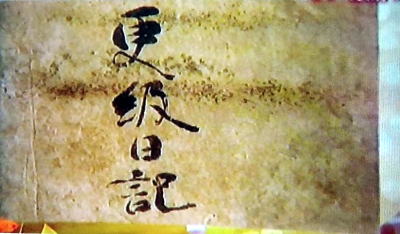 更級日記